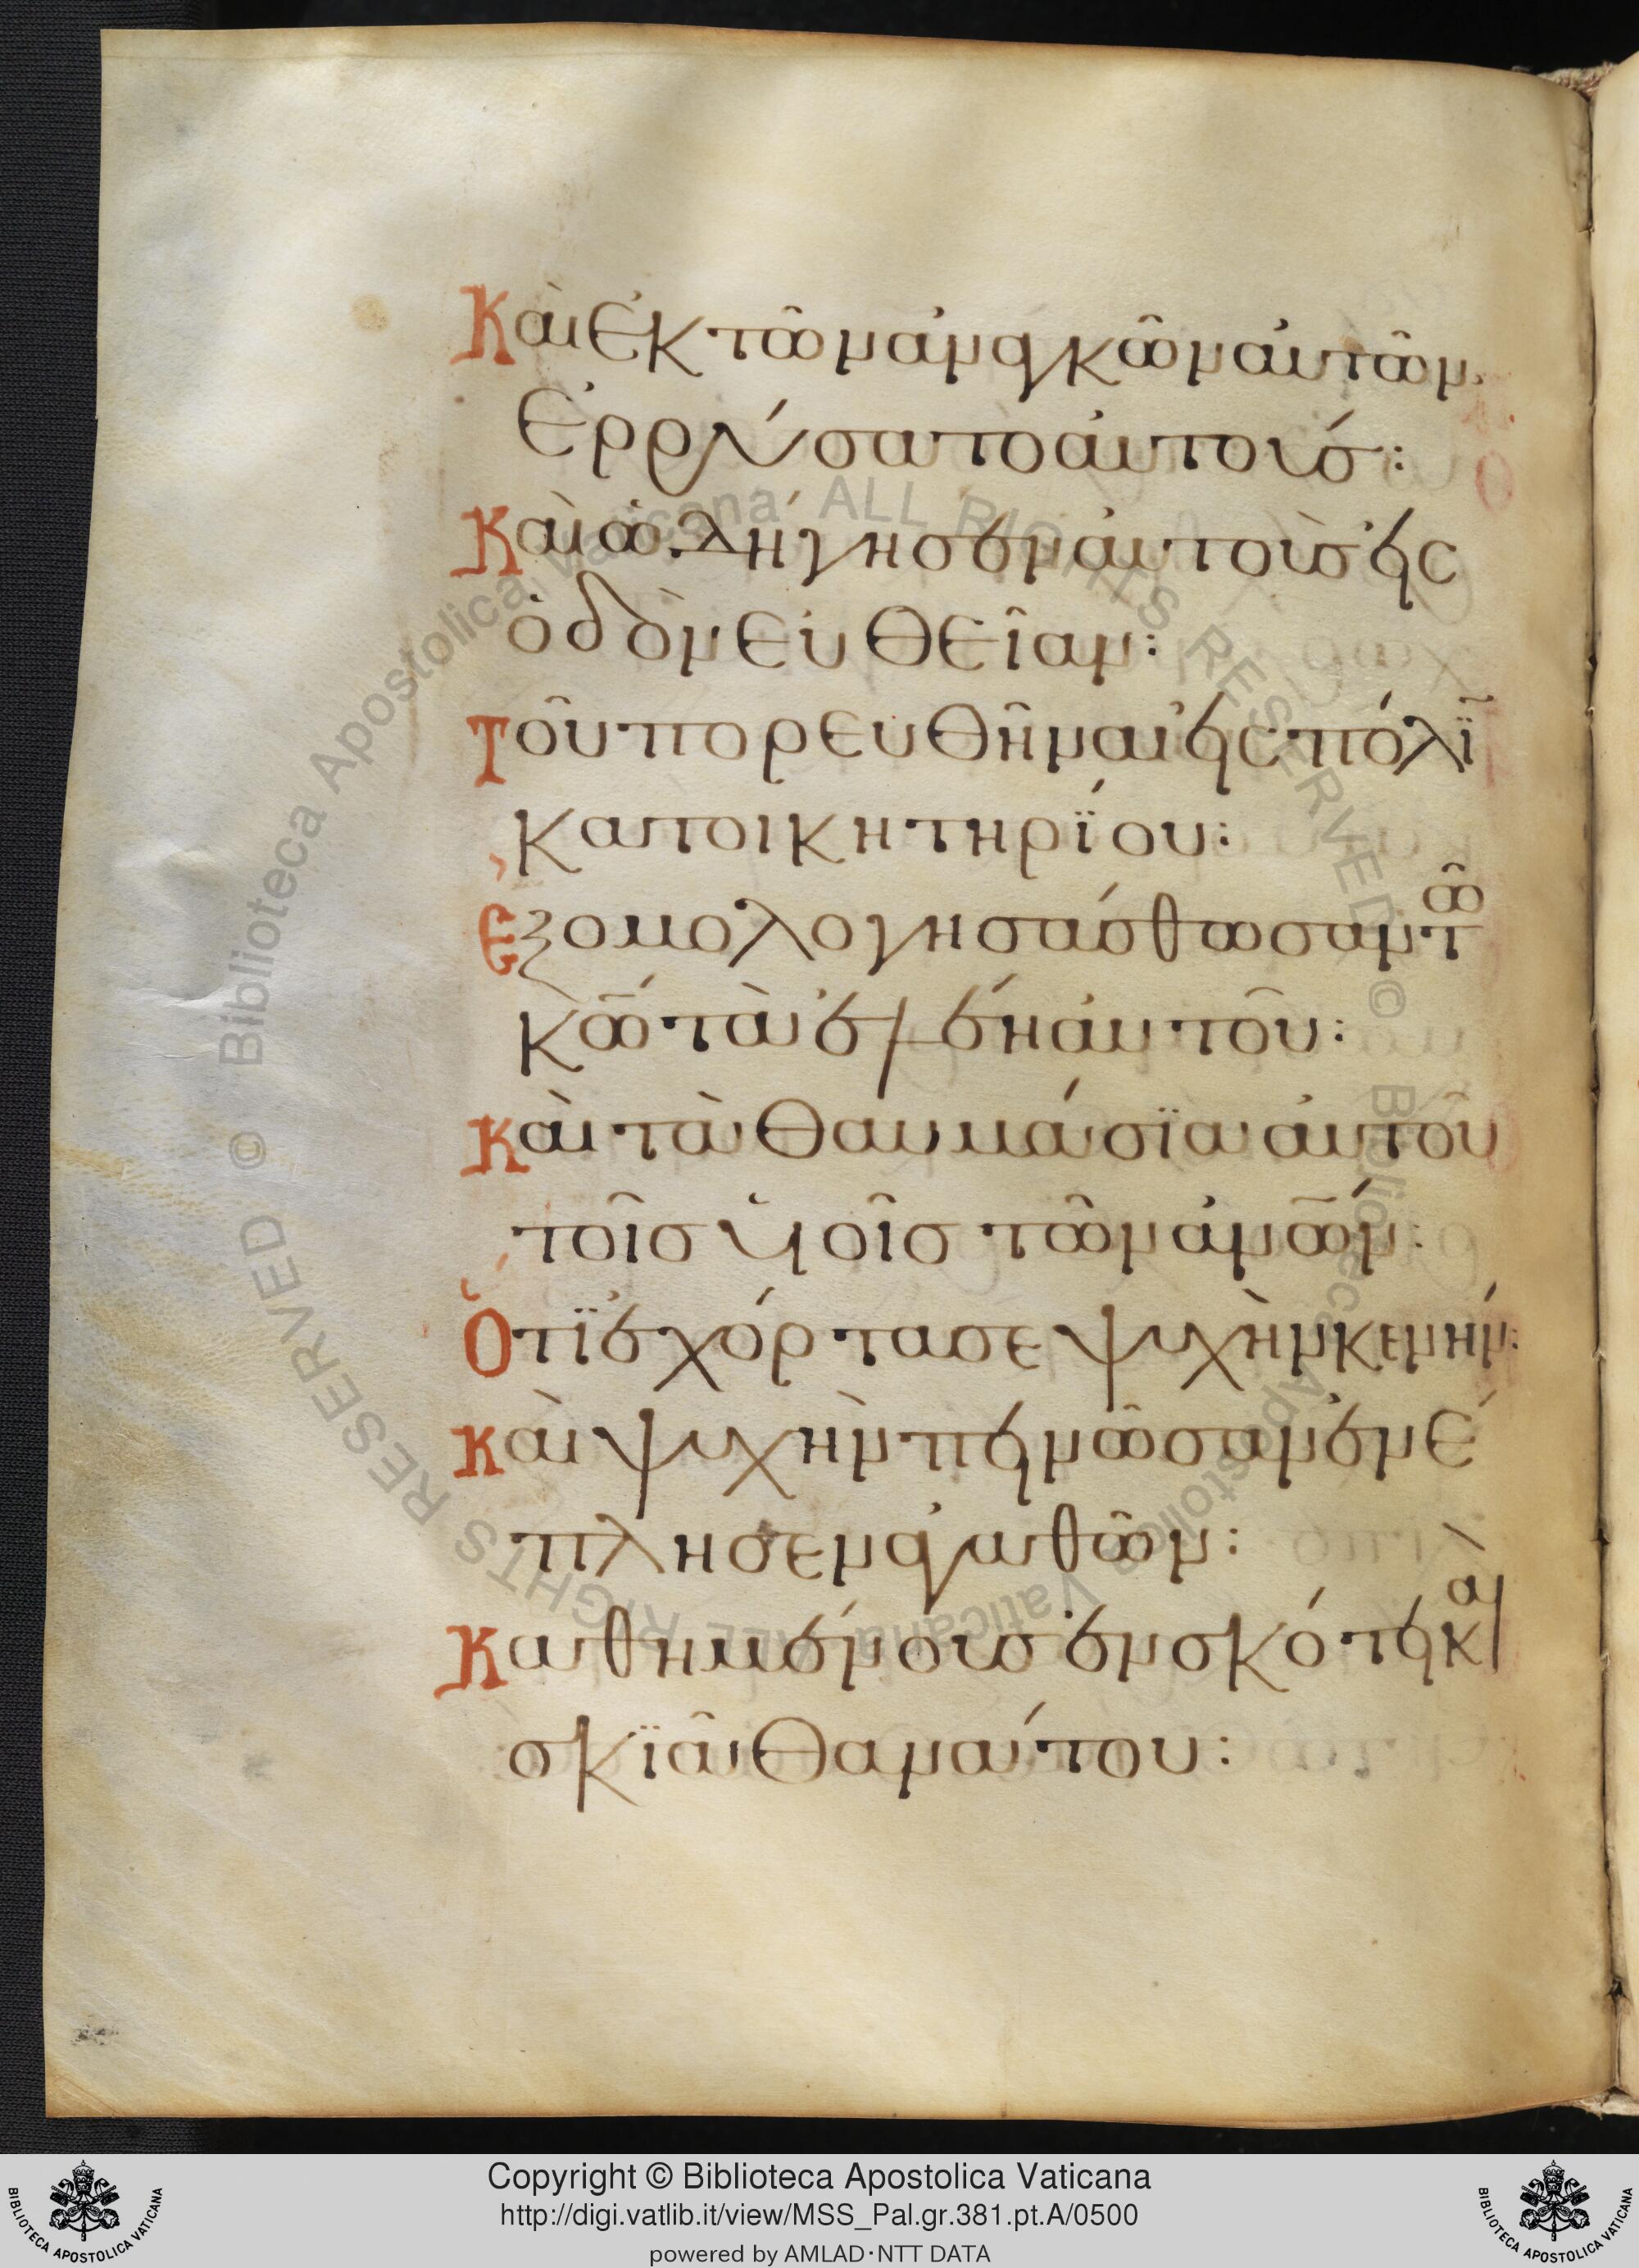 Καὶ ἐκ τῶν ἀναγκῶν αὐτῶν,
ἐρρύσατο αὐτούς:
Καὶ ὡδήγησεν αὐτοὺς εἰς
ὁδὸν εὐθεῖαν:
Τοῦ πορευθῆναι εἰς πόλϊ
κατοικητηρΐου:
Ἐξομολογησάσθωσαν τῶ
κω̅ τὰ ἐλέη αὐτοῦ:
Καὶ τὰ θαυμάσϊα αὐτοῦ
τοῖς υἱοῖς τῶν ἀνων̅:
Ὅτϊ ἐχόρτασε ψυχὴν κενήν:
Καὶ ψυχὴν πεινῶσαν ἐνέ
πλησεν ἀγαθῶν:
Καθημένους ἐν σκότει κα
σκϊᾶ θανάτου:
Copyright © Biblioteca Apostolica Vaticana
http://digi.vatlib.it/view/MSS_Pal.gr.381.pt.A/0500
powered by AMLAD·NTT DATA
BIBLIOTECA APOSTOLICA VATICANA
BIBLIOTECA APOSTOLICA VATICANA
© Biblioteca Apostolica Vaticana ALL RIGHTS RESERVED
© Biblioteca Apostolica Vaticana ALL RIGHTS RESERVED